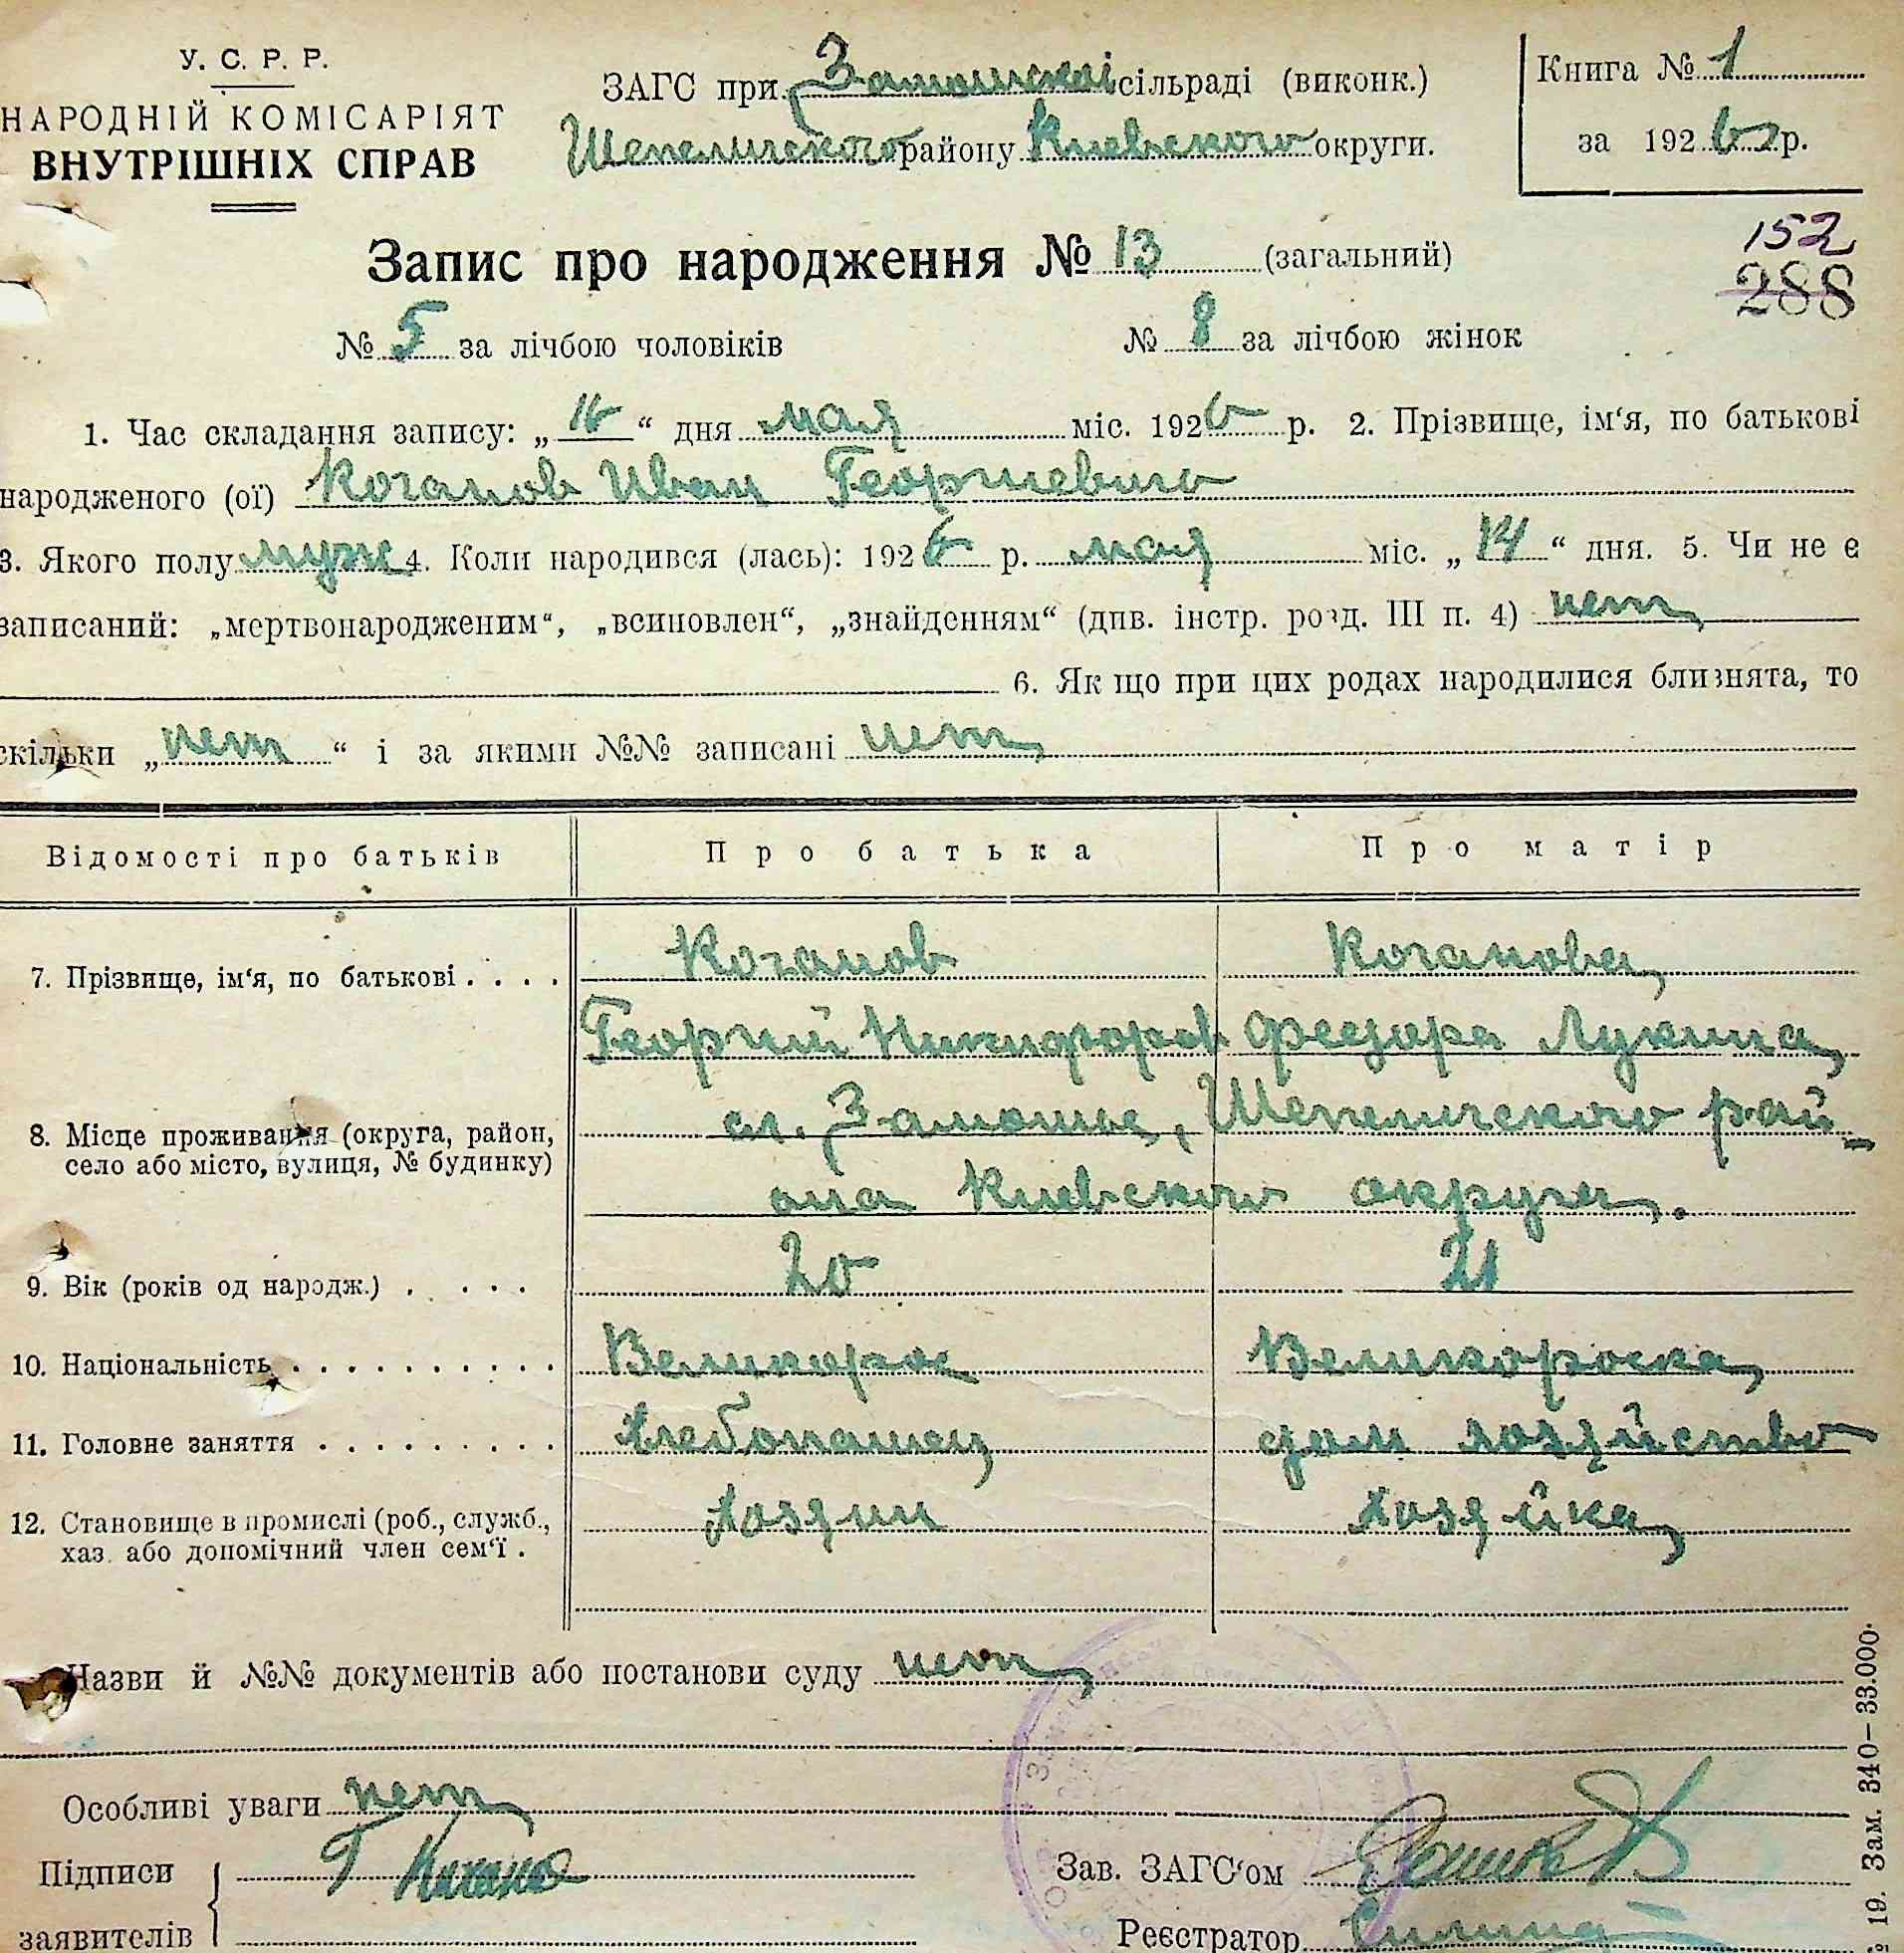 У. С. Р. Р.
НАРОДНІЙ КОМІСАРІЯТ
ВНУТРІШНІХ СПРАВ
ЗАГС при Замошской сільраді (виконк.)
Шепеличского району Киевского округи.
Книга № 1
за 1926 р.
Запис про народження № 13 (загальний)
152
288
№ 5 за лічбою чоловіків № 8 за лічбою жінок
1. Час складання запису: „16“ дня мая міс. 1926 р. 2. Прізвище, ім‘я, по батькові
народженого (ої) Коганов Иван Георгиевич
3. Якого полу муж 4. Коли народився (лась): 1926 р. мая міс. „14“ дня. 5. Чи не є
записаний: „мертвонародженим“, „всиновлен“, „знайденням“ (див. інстр. розд. III п. 4) нет
6. Як що при цих родах народилися близнята, то
скільки „нет“ і за якими №№ записані нет
Відомості про батьків Про батька Про матір
7. Прізвище, ім‘я, по батькові . . . . Коганов Коганова
Георгий Никифоров Федора Лукина
8. Місце проживання (округа, район, село або місто, вулиця, № будинку) сл. Замошье, Шепеличского рай-
она Киевского округа.
9. Вік (років од народж.) . . . . . 20 21
10. Національність . . . . . . . . . . Великорос Великороска
11. Головне заняття . . . . . . . . . Хлебопашец дом хозяйство
12. Становище в промислі (роб., служб., Хозяин Хозяйка
хаз. або допомічний член сем‘ї .
Назви й №№ документів або постанови суду нет
Особливі уваги нет
Підписи Г Коганов
заявителів
Зав. ЗАГС‘ом
Реєстратор
19. Зам. 340–33.000.